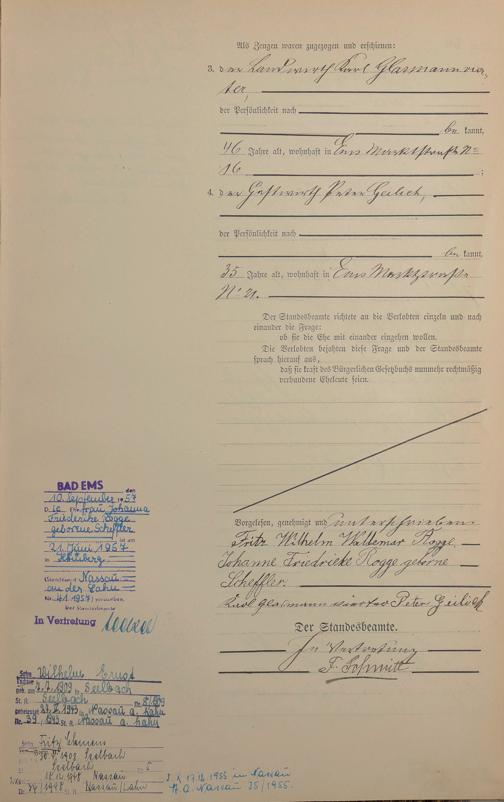 Als Zeugen waren zugezogen und erschienen:
3. der Landwirth Karl Glasmann vier-
ter,
der Persönlichkeit nach
be kannt,
46 Jahre alt, wohnhaft in Ems Marktstraße No
16 ;
4. der Gastwirth Peter Geilich,
der Persönlichkeit nach
be kannt,
35 Jahre alt, wohnhaft in Ems Marktstraße
No 21.
Der Standesbeamte richtete an die Verlobten einzeln und nach
einander die Frage:
ob sie die Ehe mit einander eingehen wollen.
Die Verlobten bejahten diese Frage und der Standesbeamte
sprach hierauf aus,
daß sie kraft des Bürgerlichen Gesetzbuchs nunmehr rechtmäßig
verbundene Eheleute seien.
Vorgelesen, genehmigt und unterschrieben
Fritz Wilhelm Waldemar Rogge
Johanne Friedrieke Rogge geborne
Scheffler.
Karl Glasmann vierter Peter Geilich
Der Standesbeamte.
In Vertretung
F. Schmitt
BAD EMS den
10. September 1957
Die Frau Johanna
Friederike Rogge
geborene Scheffler
ist am
21. Juni 1957
in
Nassau
an der Lahn
Nr. 41/1957) verstorben.
Der Standesbeamte
In Vertretung
Sohn Wilhelm Ernst
1909 in Seelbach
St. A. Seelbach Nr. 8/1909
1943 in Nassau a. Lahn
Nr. 39/1943 St. A. Nassau a. Lahn
Fritz Clemens
1908 Seelbach
Seelbach
18.12.1948 Nassau
Nr. 34/1948 Nassau/Lahn
17.12.1955 in Nassau
St. A. Nassau 35/1955.